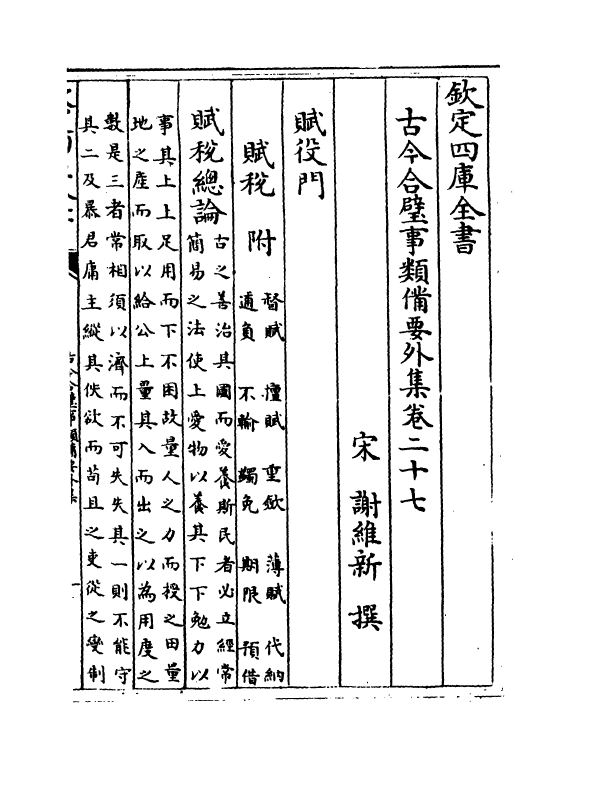 欽定四庫全書
古今合璧事類備要外集卷二十七
宋 謝維新 撰
賦役門
賦稅 附
督賦 擅賦 重斂 薄賦 代納
逋負 不輸 蠲免 期限 預借
賦稅總論
古之善治其國而愛養斯民者必立經常
簡易之法使上愛物以養其下下勉力以
事其上上足用而下不困故量人之力而授之田量
地之産而取以給公上量其入而出之以為用度之
數是三者常相須以濟而不可失失其一則不能守
其二及暴君庸主縱其佚欲而茍且之吏從之變制
古今合璧事類備要外集
一